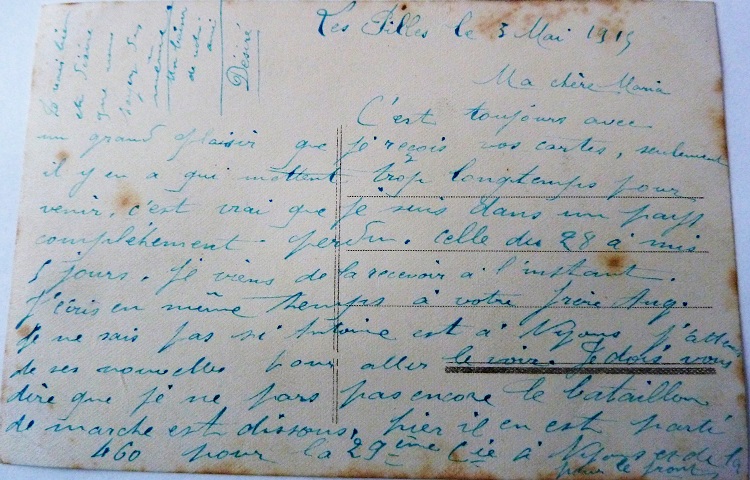 Les Pilles le 3 Mai 1915
Ma chère Maria
C'est toujours avec
un grand plaisir que je reçois vos cartes, seulement
il y en a qui mettent trop longtemps pour
venir, c'est vrai que je suis dans un pays
complètement perdu. Celle du 28 à mis
5 jours. Je viens de la recevoir à l'instant.
J'écris en même temps à votre frère Aug.
Je ne sais pas si Antoine est à Nyons j'attens
de ses nouvelles pour aller le voir. Je dois vous
dire que je ne pars pas encore le bataillon
de marche est dissous, hier il en est parti
460 pour la 29ème Cie à Nyons et de là
pour le front
que vous
même
un bien
ami
Désiré